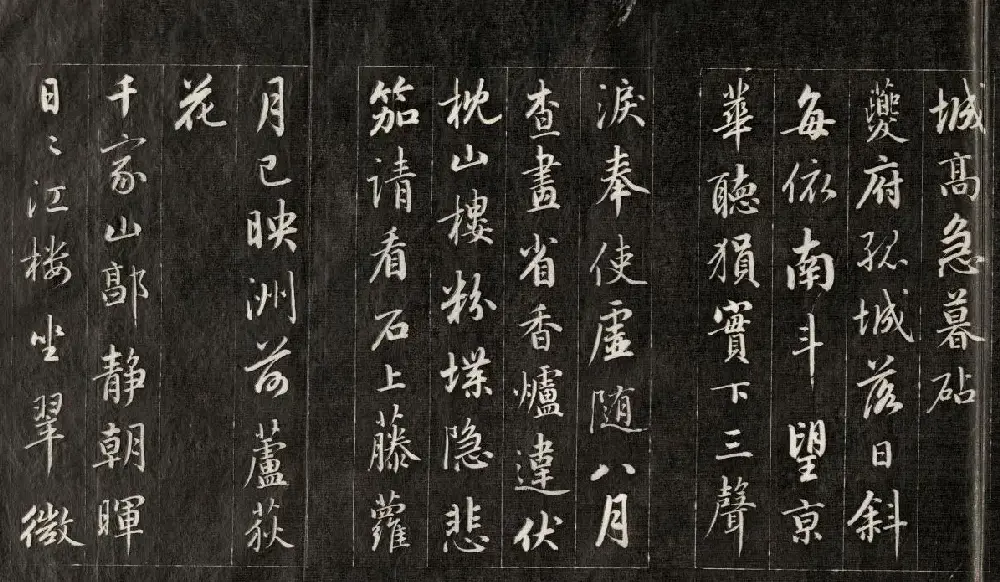 城高急暮砧
夔府孤城落日斜
每依南斗望京
華聽猨實下三聲
淚奉使虛随八月
查畫省香爐違伏
枕山樓粉堞隐悲
笳請看石上藤蘿
月已映洲前蘆荻
花
千家山郭静朝暉
日〻江楼坐翠微